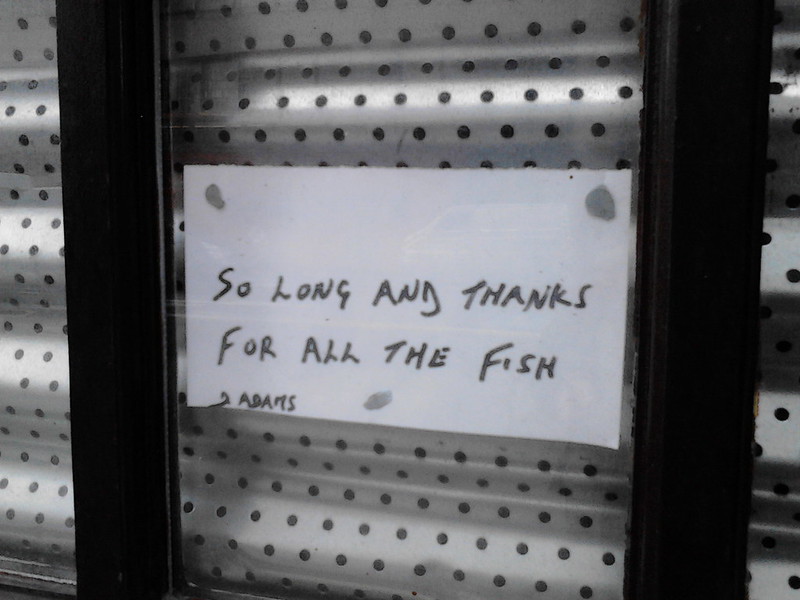 SO LONG AND THANKS
FOR ALL THE FISH
D ADAMS